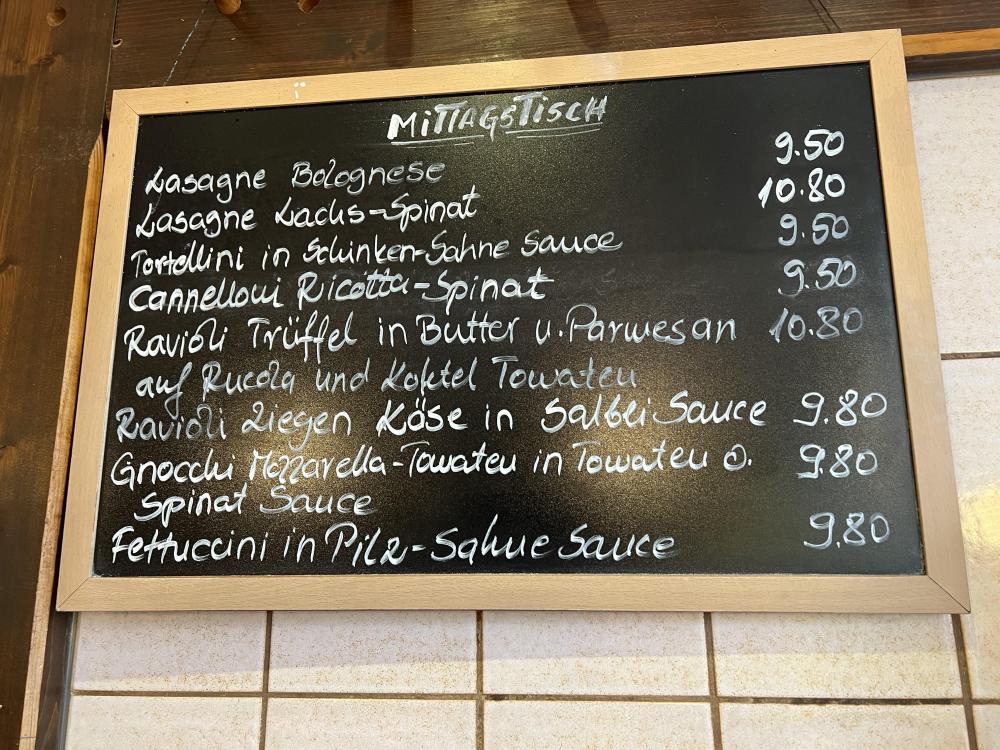 MITTAGSTISCH
Lasagne Bolognese 9.50
Lasagne Lachs-Spinat 10.80
Tortellini in Schinken-Sahne Sauce 9.50
Cannelloni Ricotta-Spinat 9.50
Ravioli Trüffel in Butter u. Parmesan 10.80
auf Rucola und Koktel Tomaten
Ravioli Ziegen Käse in Salbei Sauce 9.80
Gnocchi Mozzarella-Tomaten in Tomaten o. 9.80
Spinat Sauce
Fettuccini in Pilz-Sahne Sauce 9,80